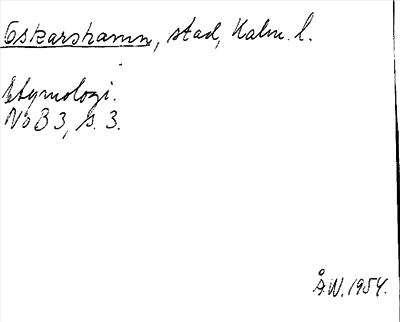 Oskarshamn, stad, Kalm. l.
Etymologi.
NoB 3, s. 3.
Å.W. 1954.